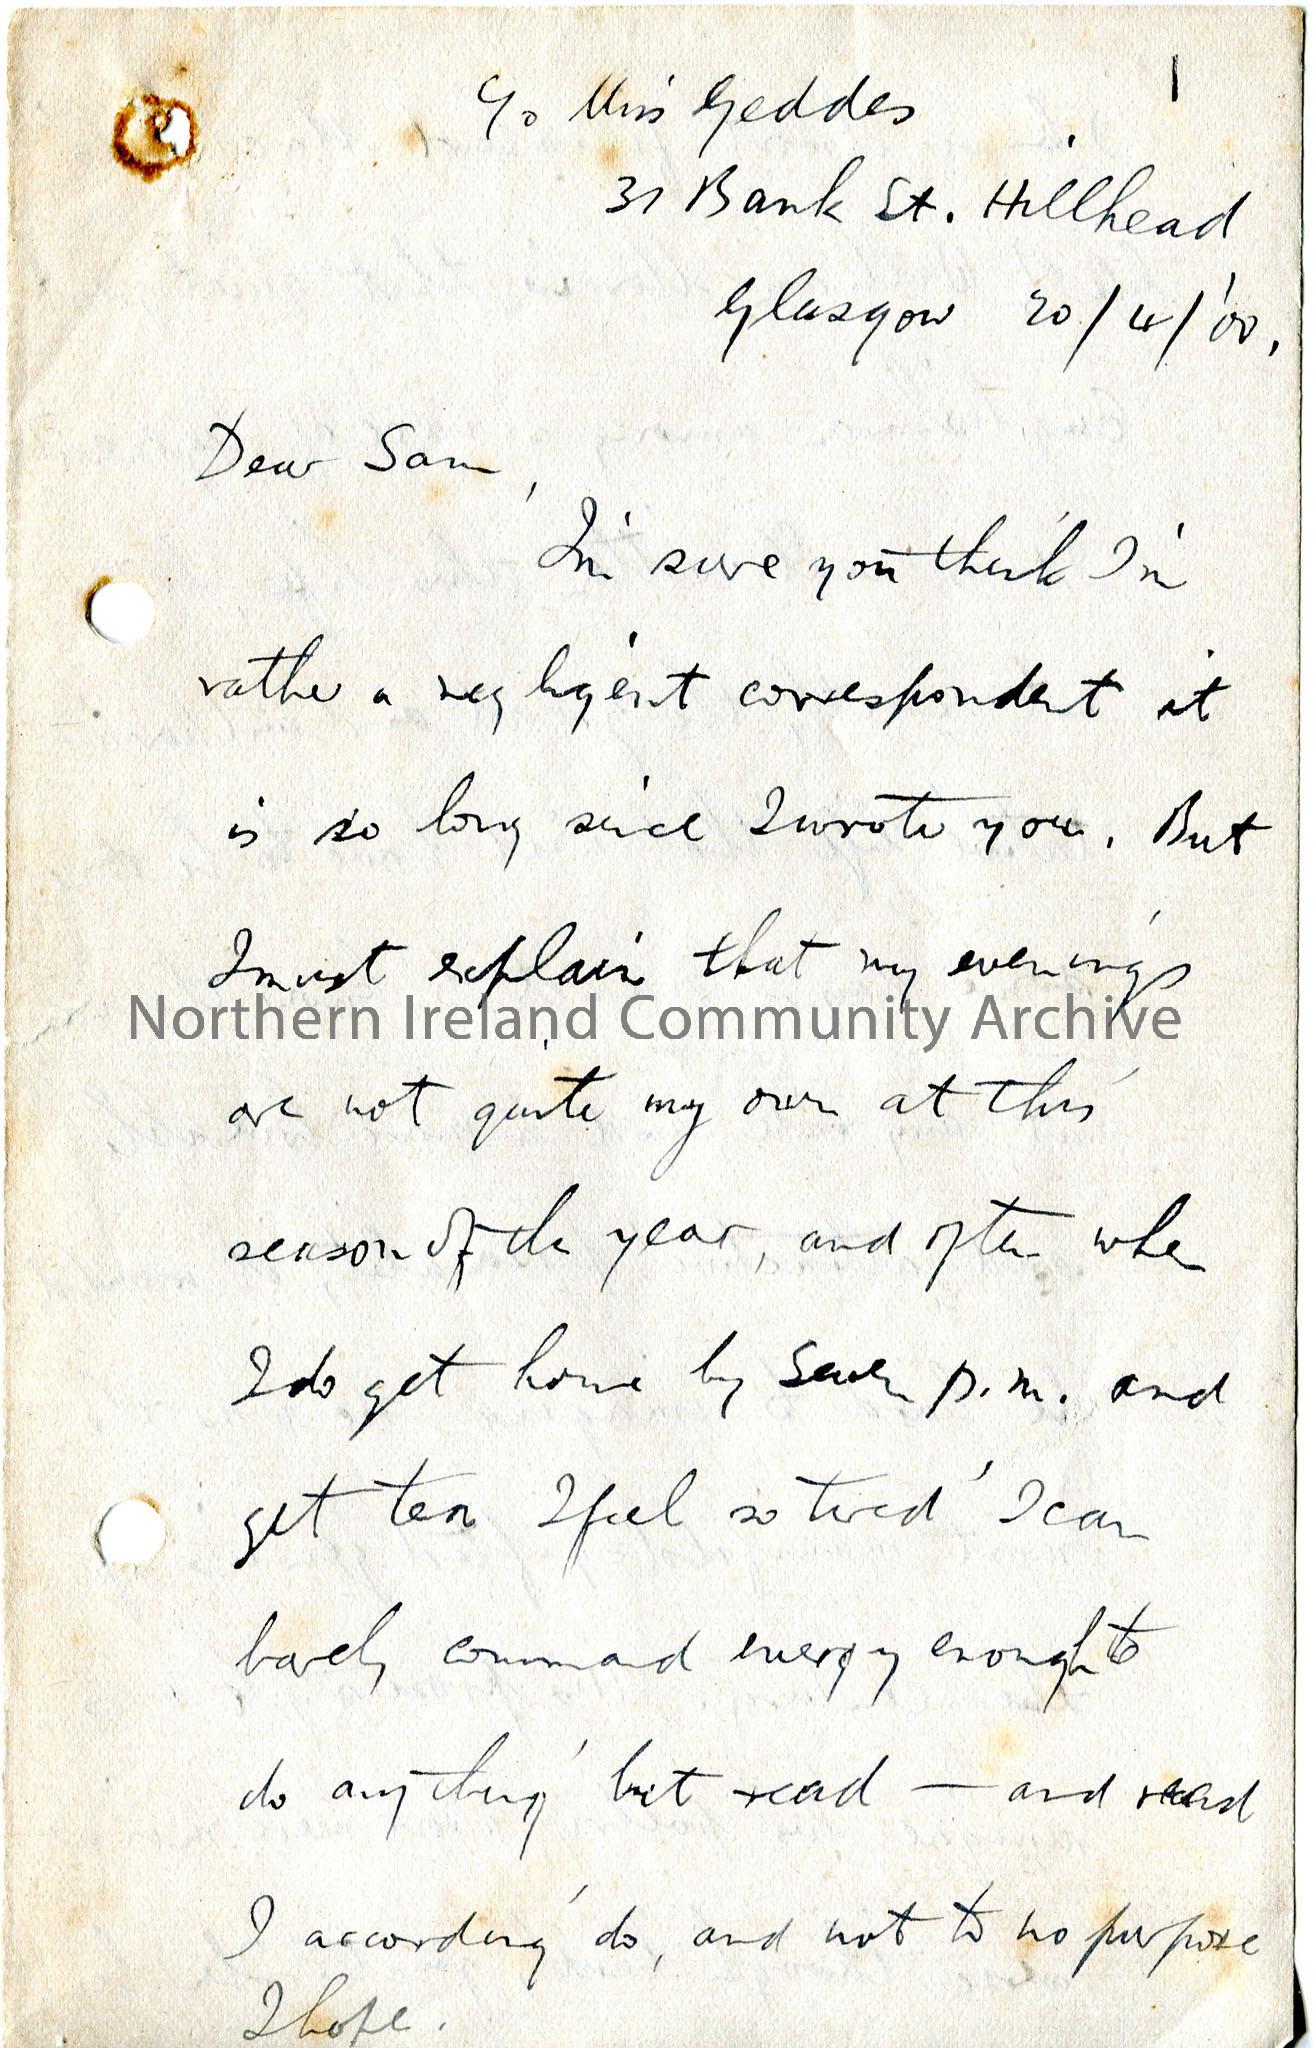 1
C/o Miss Geddes
31 Bank St. Hillhead
Glasgow 20/4/'00.
Dear Sam,
I'm sure you think I'm
rather a negligent correspondent it
is so long since I wrote you. But
I must explain that my evenings
Northern Ireland Community Archive
are not quite my own at this
season of the year, and often when
I do get home by seven p.m. and
get tea I feel so tired I can
barely command energy enough to
do anything but read — and read
I according do, and not to no purpose
I hope.